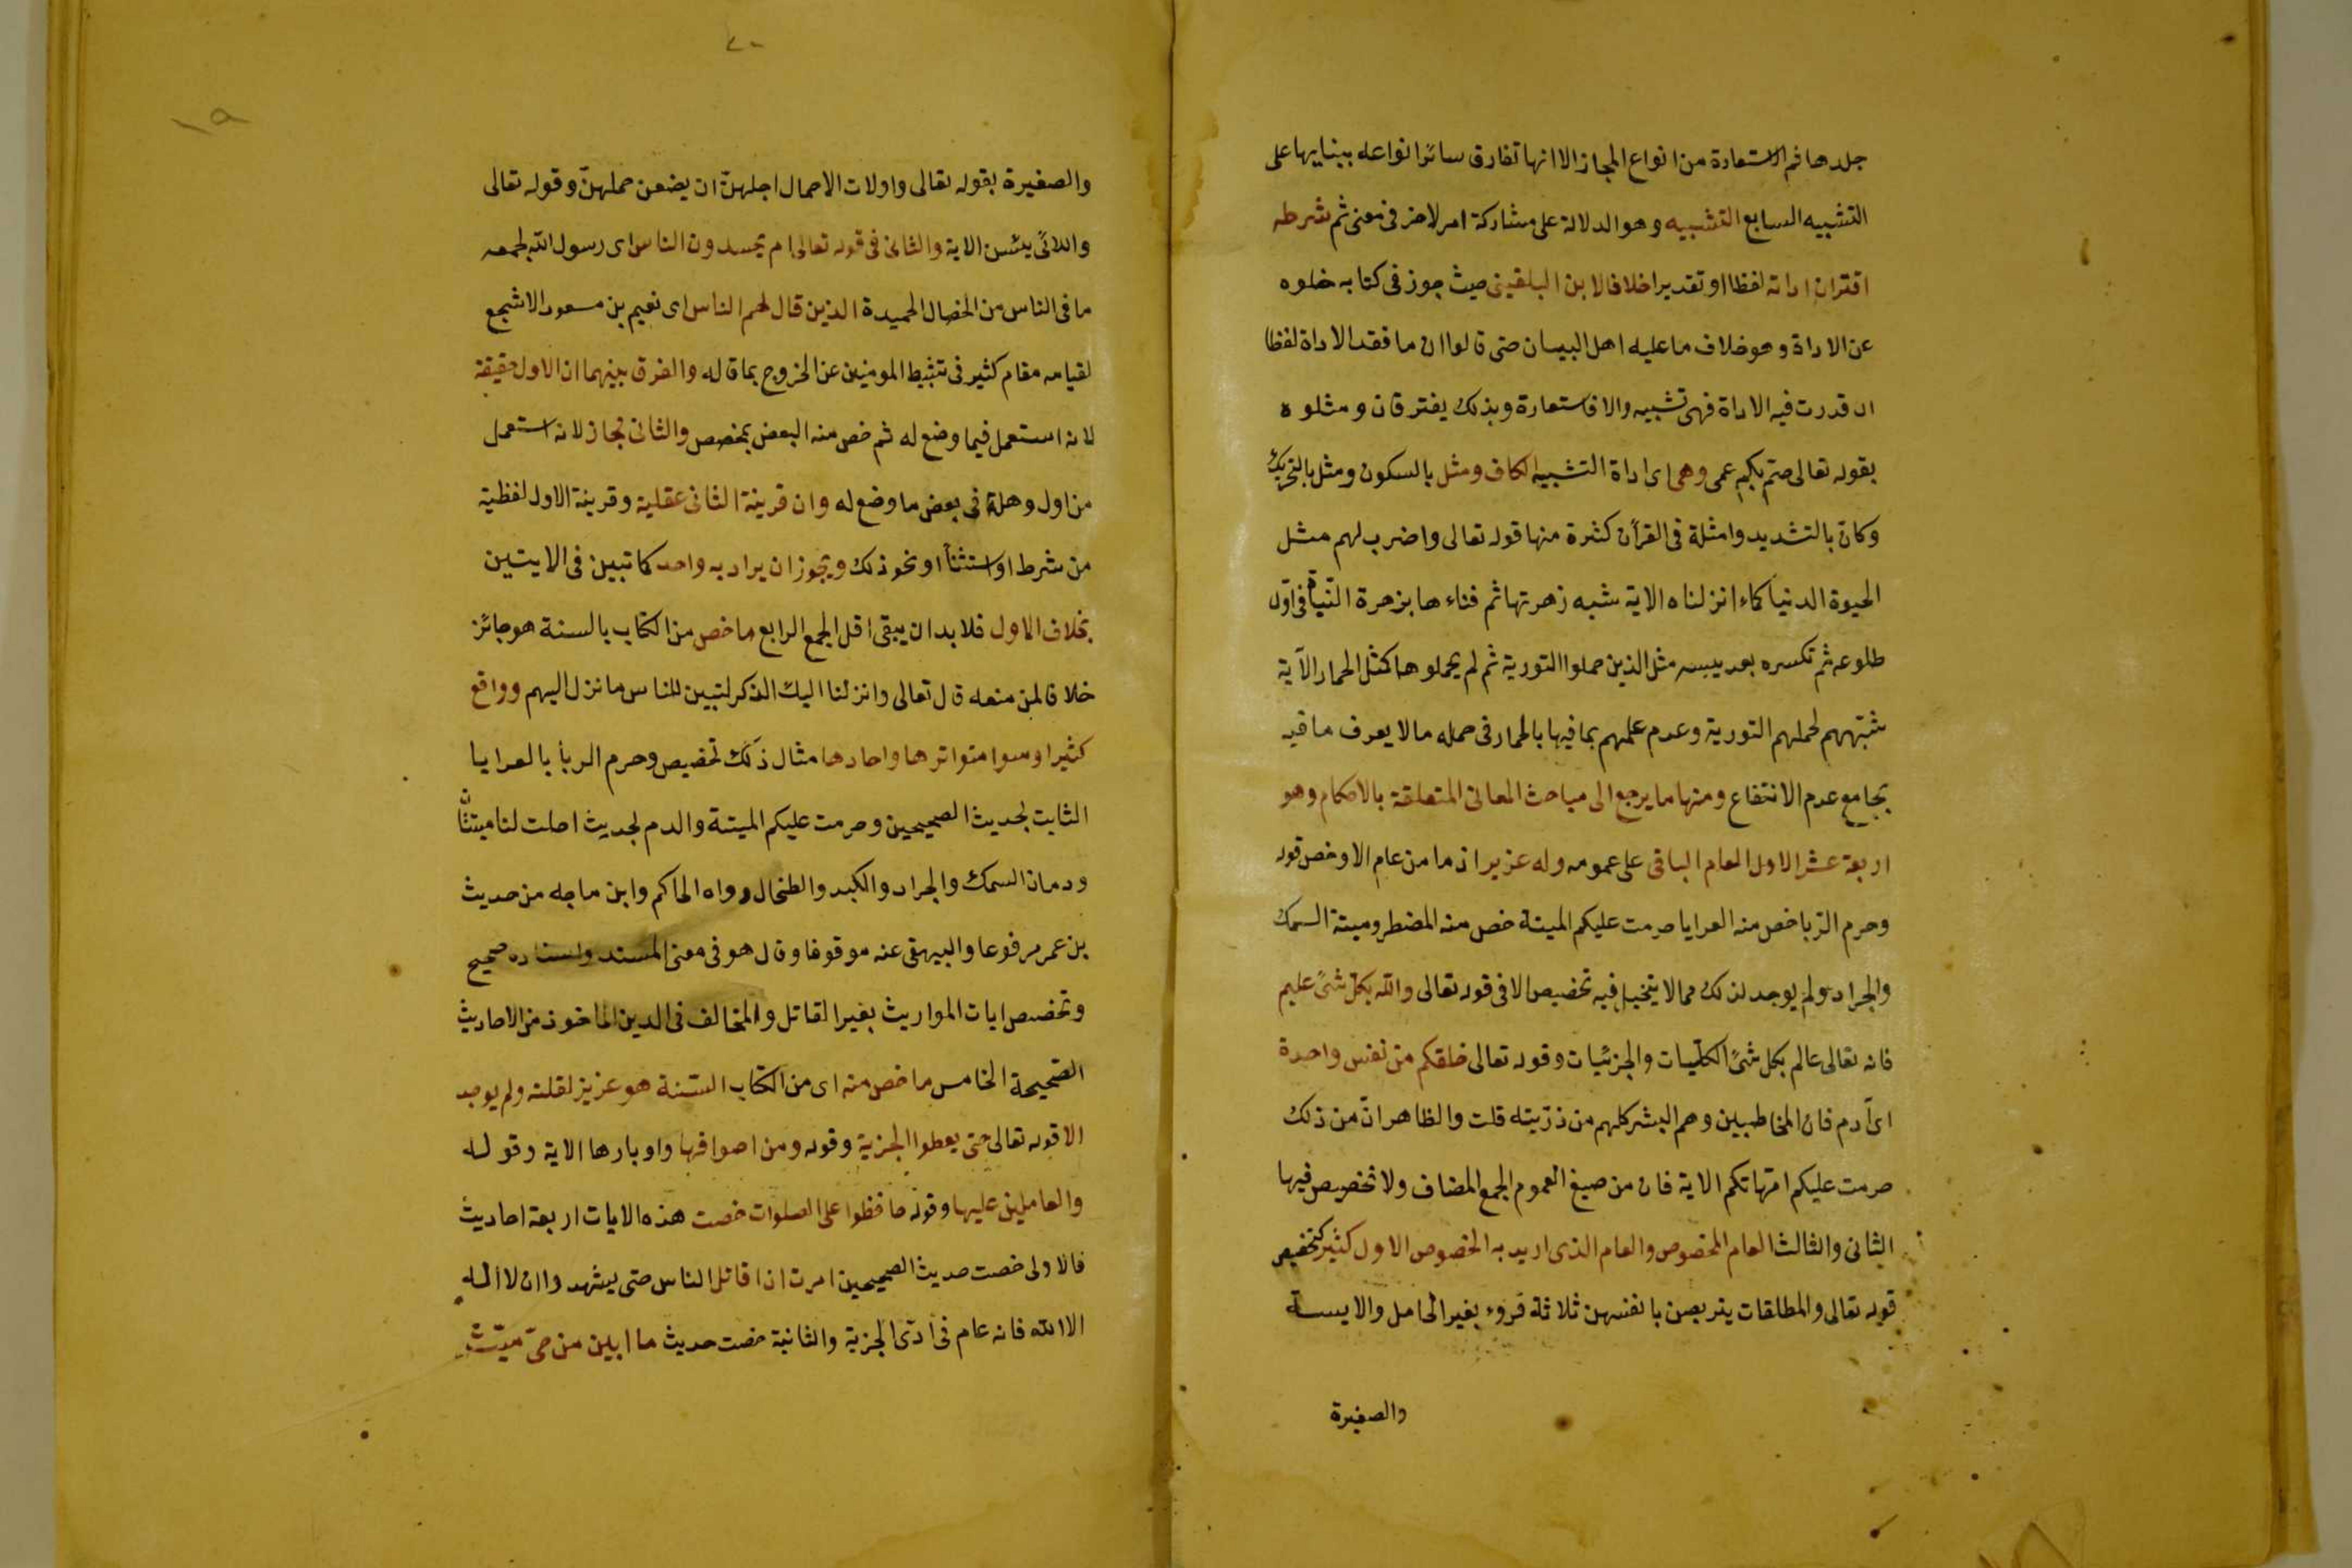 جلدها ثم الاستعارة من انواع المجاز الا انها تفارق سائر انواعه ببنايها على
التشبيه السابع التشبيه وهو الدلالة على مشاركة امر لاخر فى معنى ثم شرطه
اقتران اداته لفظا او تقديرا خلافا لابن البلقينى حيث جوز فى كتابه خلوه
عن الاداة وهو خلاف ما عليه اهل البيان حتى قالوا ان ما فقد الاداة لفظا
ان قدرت فيه الاداة فهى تشبيه والا فاستعارة وبذلك يفترقان ومثلوه
بقوله تعالى صمّ بكم عمى وهى اى اداة التشبيه الكاف ومثل بالسكون ومثل بالتحريك
وكانّ بالتشديد وامثلة فى القرآن كثرة منها قوله تعالى واضرب لهم مثل
الحيوة الدنيا كماء انزلناه الاية شبه زهرتها ثم فناءها بزهرة النّبات فى اوّل
طلوعه ثم تكسره بعد يبسه مثل الذين حملوا التورية ثم لم يحملوها كمثل الحمار الآية
شبّههم لحملهم التورية وعدم علمهم بما فيها بالحمار فى حمله ما لا يعرف ما فيه
بجامع عدم الانتفاع ومنها ما يرجع الى مباحث المعانى المتعلقة بالاحكام وهو
اربعة عشر الاول العام الباقى على عمومه وله عزيز اذ ما من عام الا وخص قوله
وحرم الرّبا خص منه العرايا حرمت عليكم الميتة خص منه المضطر وميتة السمك
والجراد ولم يوجد لذلك مما لا يتخيل فيه تخصيص الا فى قوله تعالى والله بكل شئ عليم
فانه تعالى عالم بكل شئ الكلّيات والجزئيات وقوله تعالى خلقكم من نفس واحدة
اى آدم فان المخاطبين وهم البشر كلهم من ذرّيته قلت والظاهر انّ من ذلك
حرمت عليكم امّهاتكم الاية فان من صيغ العموم الجمع المضاف ولا تخصيص فيها
الثانى والثالث العام المخصوص والعام الذى اريد به الخصوص الاول كثير كتخصيص
قوله تعالى والمطلقات يتربصن بانفسهن ثلاثة قروء بغير الحامل والايسة
والصغيرة
٢٠
١٩
والصغيرة بقوله تعالى واولات الاحمال اجلهنّ ان يضعن حملهنّ وقوله تعالى
واللائى يئسن الاية والثانى فى قوله تعالى ام يحسدون الناس اى رسول الله لجمعه
ما فى الناس من الخصال الحميدة الذين قال لهم الناس اى نعيم بن مسعود الاشجع
لقيامه مقام كثير فى تثبيط المومنين عن الخروج بما قاله والفرق بينهما ان الاول حقيقة
لانه استعمل فيما وضع له ثم خص منه البعض بمخصص والثانى مجاز لانه استعمل
من اول وهلة فى بعض ما وضع له وان قرينة الثانى عقلية وقرينة الاول لفظية
من شرط او استثنأ او نحو ذلك ويجوز ان يراد به واحد كما تبين فى الايتين
بخلاف الاول فلا بد ان يبقى اقل الجمع الرابع ما خص من الكتاب بالسنة هو جائز
خلافا لمن منعه قال تعالى وانزلنا اليك الذكر لتبين للناس ما نزل اليهم وواقع
كثيرا وسوا متواترها واحادها مثال ذلك تخصيص وحرم الربأ بالعرايا
الثابت لحديث الصحيحين وحرمت عليكم الميتة والدم لحديث احلت لنا ميتتان
ودمان السمك والجراد والكبد والطحال رواه الحاكم وابن ماجه من حديث
بن عمر مرفوعا والبيهقى عنه موقوفا وقال هو فى معنى المسند واسناده صحيح
وتخصص ايات المواريث بغير القاتل والمخالف فى الدين الماخوذ من الاحاديث
الصّحيحة الخامس ما خص منه اى من الكتاب السّنة هو عزيز لقلته ولم يوجد
الا قوله تعالى حتى يعطوا الجزية وقوله ومن اصوافها واوبارها الاية وقوله
والعاملين عليها وقوله حافظوا على الصلوات خصت هذه الايات اربعة احاديث
فالاولى خصت حديث الصحيحين امرت ان اقاتل الناس حتى يشهدوا ان لا اله
الا الله فانه عام فى ادّى الجزية والثانية خصت حديث ما ابين من حىّ ميّت